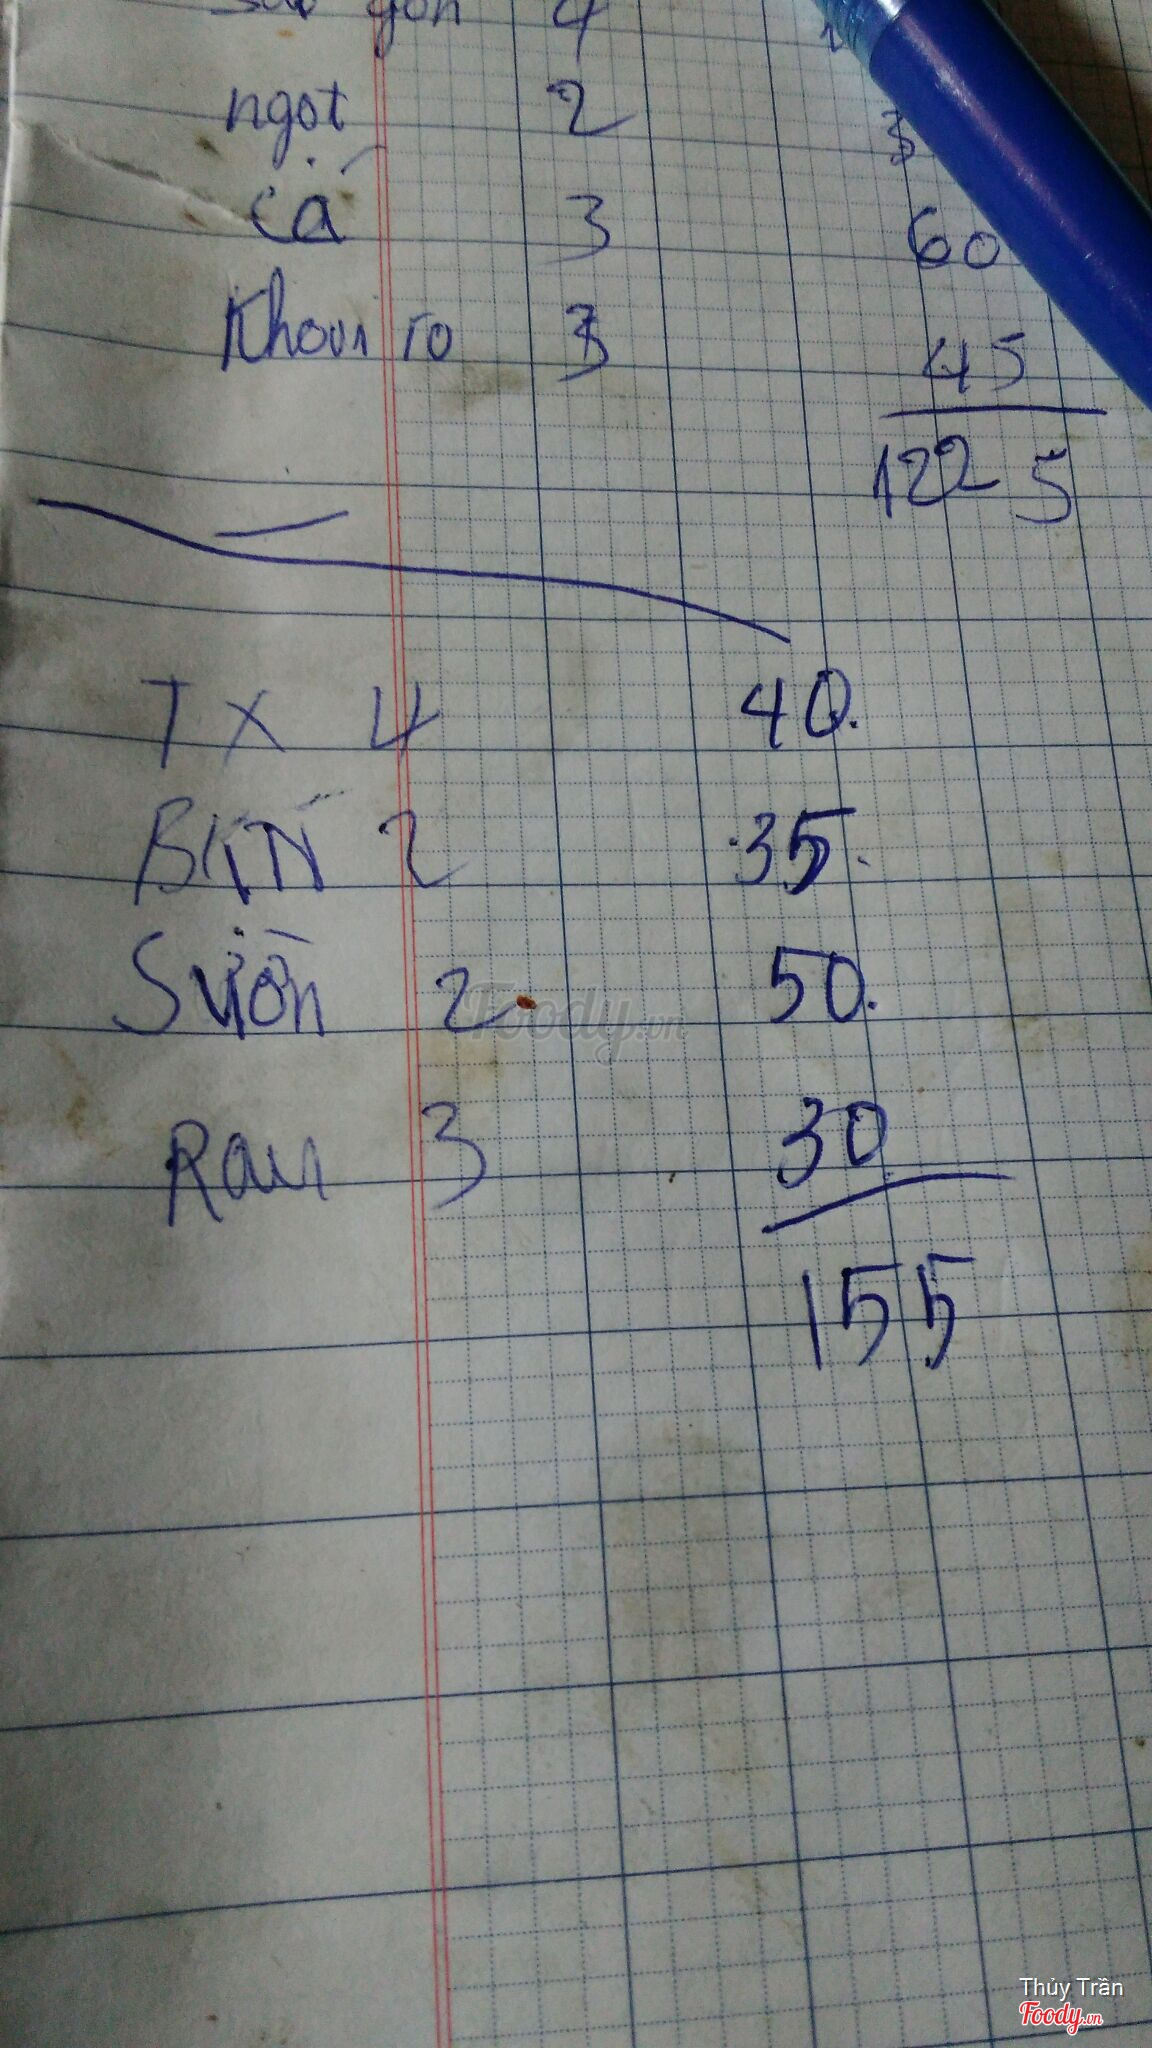 ngọt 2
cá 3 60
Khoai to 3 45
1225
TX 4 40.
BÚN 2 35
Sườn 2 50.
Rau 3 30
155
Foody.vn
Thủy Trần
Foody.vn